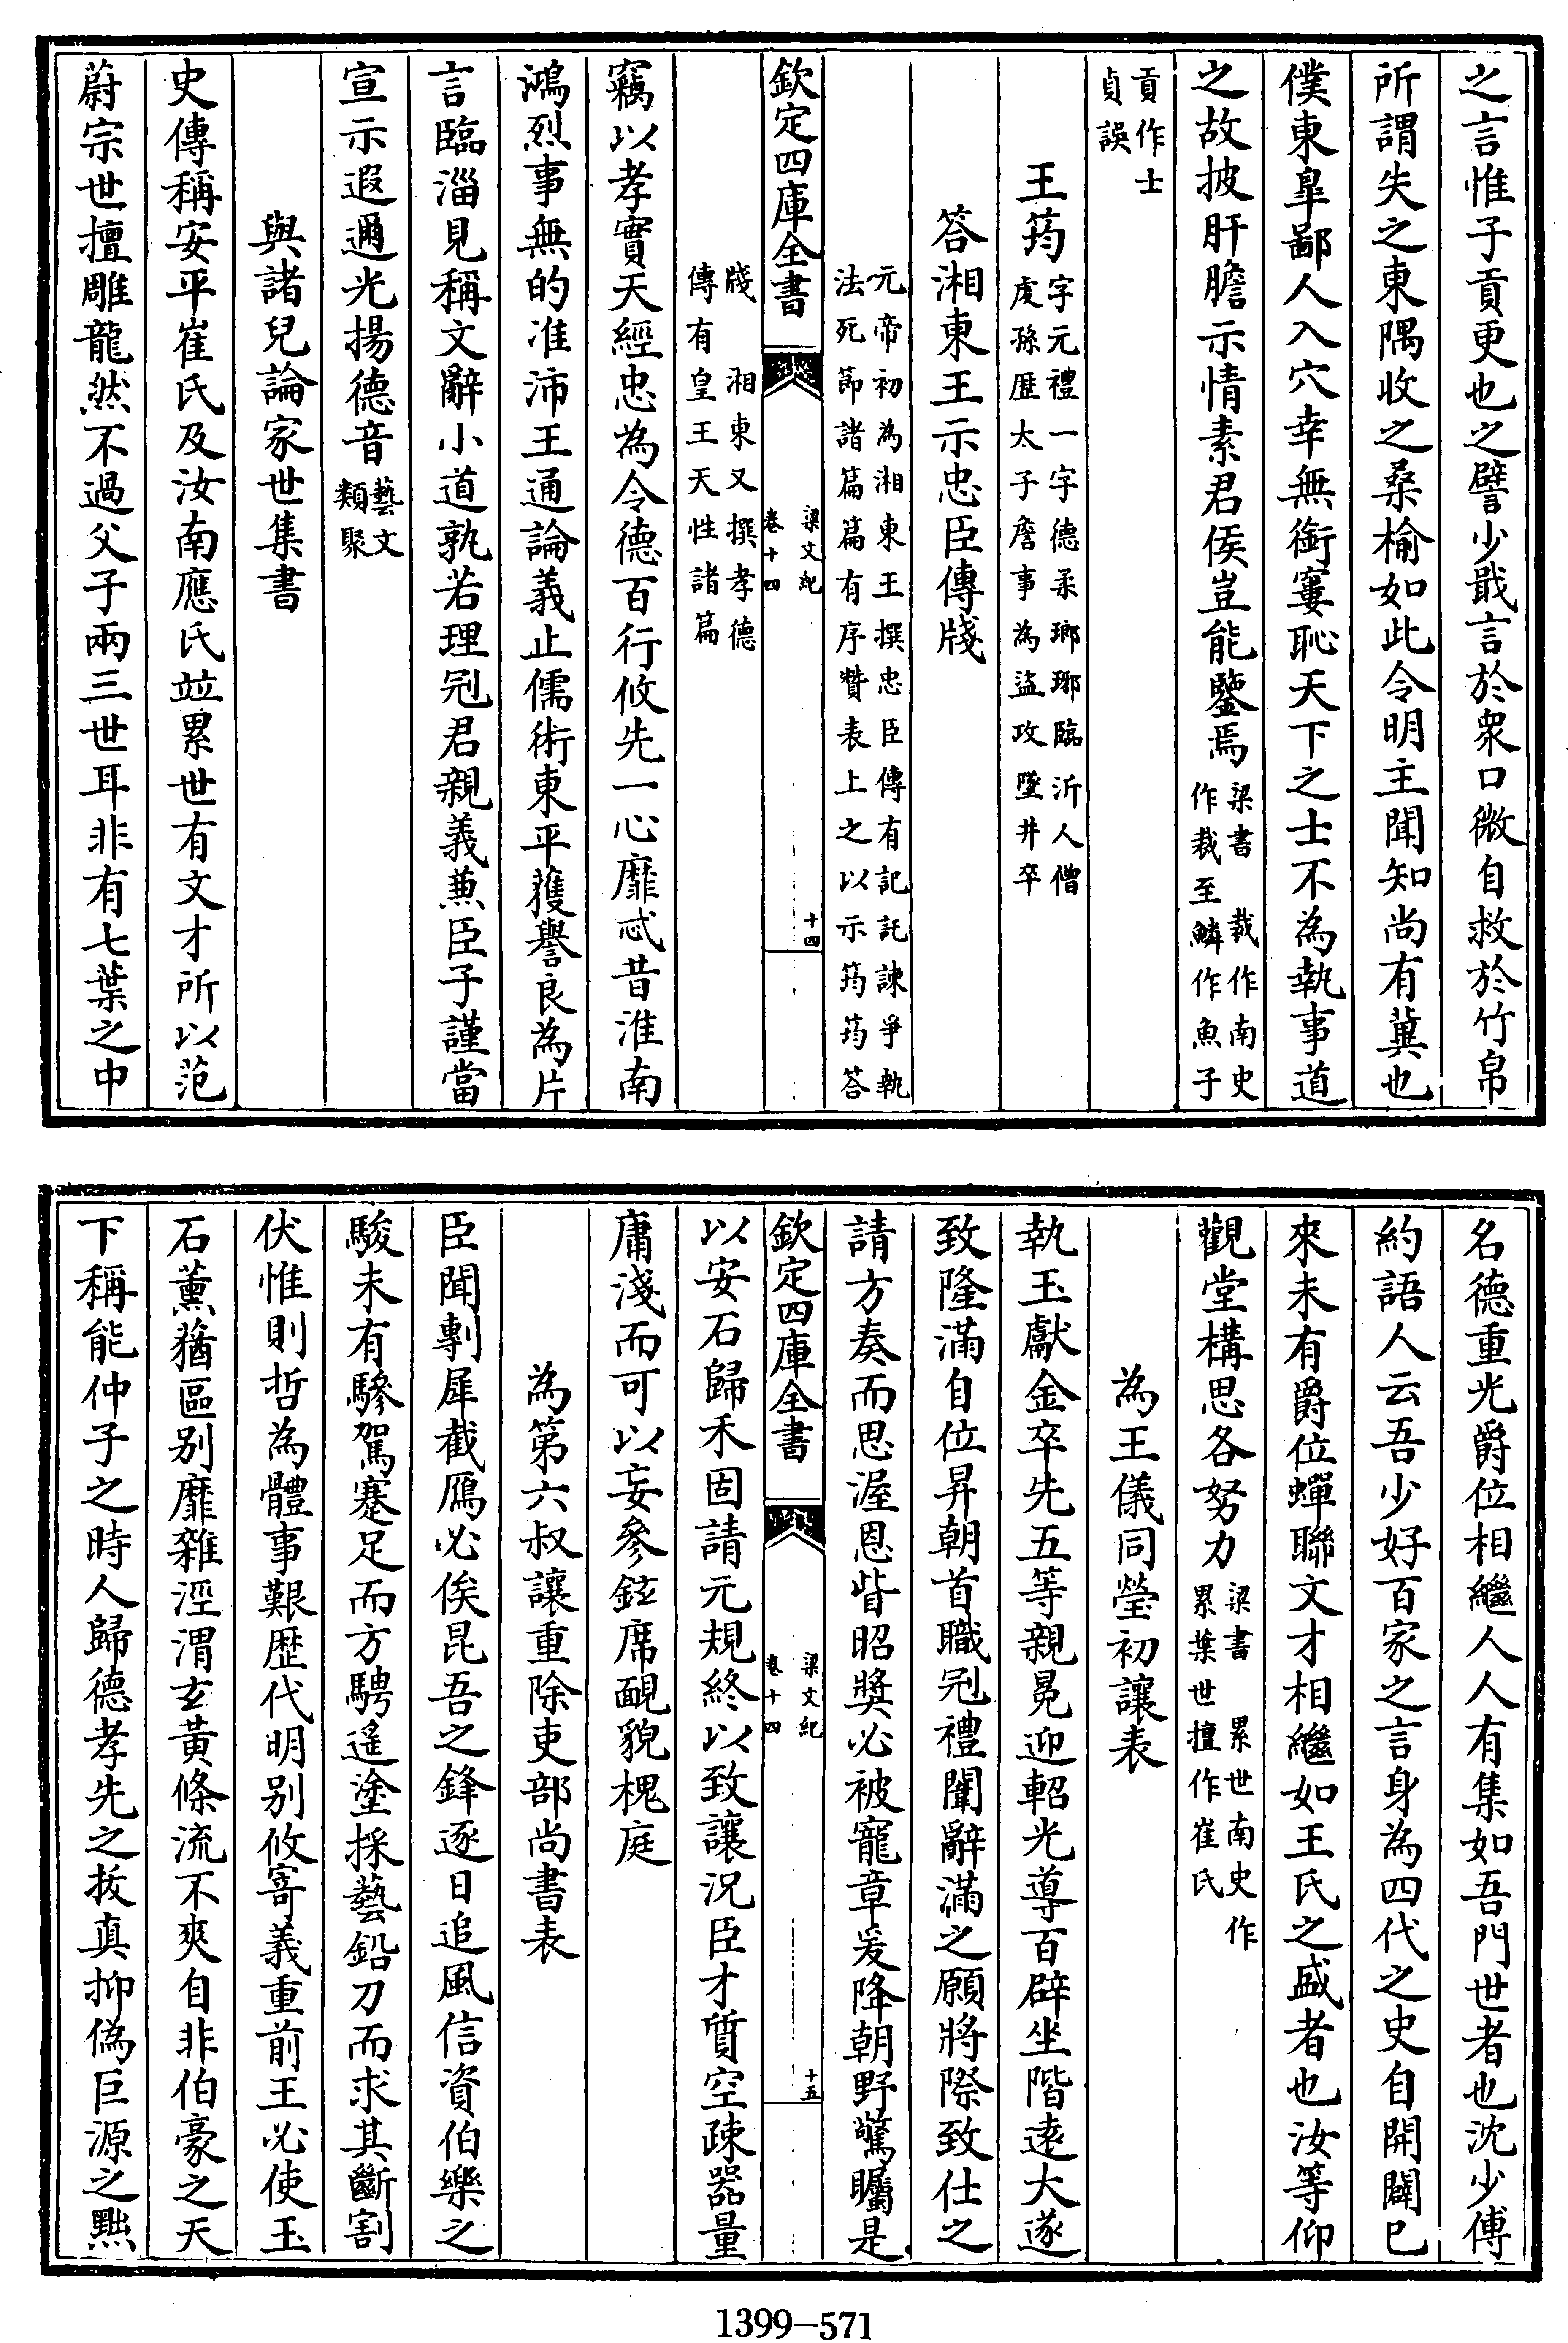 之言惟子貢更也之譬少戢言於衆口微自救於竹帛
所謂失之東隅收之桑榆如此令明主聞知尚有冀也
僕東臯鄙人入穴幸無銜窶恥天下之士不為執事道
之故披肝膽示情素君侯豈能鑒焉梁書裁作南史
作裁至鱗作魚子
貢作士
貞誤
王筠字元禮一字德柔瑯琊臨沂人僧
䖍孫歴太子詹事為盜攻墜井卒
答湘東王示忠臣傳牋
元帝初為湘東王撰忠臣傳有記託諫爭執
法死節諸篇篇有序贊表上之以示筠筠答
欽定四庫全書
梁文紀
卷十四
十四
牋湘東又撰孝德
傳有皇王天性諸篇
竊以孝實天經忠為令德百行攸先一心靡忒昔淮南
鴻烈事無的准沛王通論義止儒術東平獲譽良為片
言臨淄見稱文辭小道孰若理冠君親義兼臣子謹當
宣示遐邇光揚德音藝文
類聚
與諸兒論家世集書
史傳稱安平崔氏及汝南應氏竝累世有文才所以范
蔚宗世擅雕龍然不過父子兩三世耳非有七葉之中
名德重光爵位相繼人人有集如吾門世者也沈少傅
約語人云吾少好百家之言身為四代之史自開闢已
來未有爵位蟬聯文才相繼如王氏之盛者也汝等仰
觀堂構思各努力梁書累世南史作
累葉世擅作崔氏
為王儀同瑩初讓表
執玉獻金卒先五等親冕迎軺光導百辟坐階遠大遂
致隆滿自位昇朝首職冠禮闈辭滿之願將際致仕之
請方奏而思渥恩㫖昭奬必被寵章爰降朝野驚矚是
欽定四庫全書
梁文紀
卷十四
十五
以安石歸禾固請元規終以致讓況臣才質空疎器量
庸淺而可以妄參鉉席靦貌槐庭
為第六叔讓重除吏部尚書表
臣聞剸犀截鴈必俟昆吾之鋒逐日追風信資伯樂之
駿未有驂駕蹇足而方騁遙塗採藝鉛刀而求其斷割
伏惟則哲為體事艱歴代明别攸寄義重前王必使玉
石薰蕕區别靡雜涇渭玄黄條流不爽自非伯豪之天
下稱能仲子之時人歸德孝先之拔真抑偽巨源之黜
1399-571